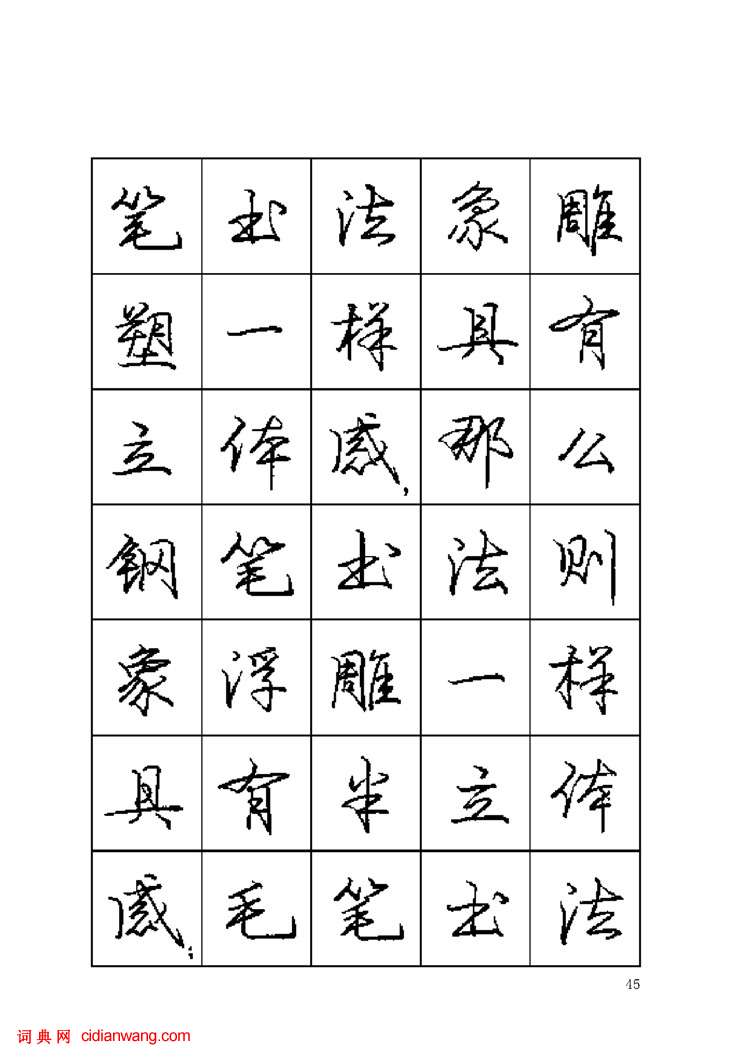 笔书法象雕
塑一样具有
立体感,那么
钢笔书法则
象浮雕一样
具有半立体
感;毛笔书法
45
词典网 cidianwang.com